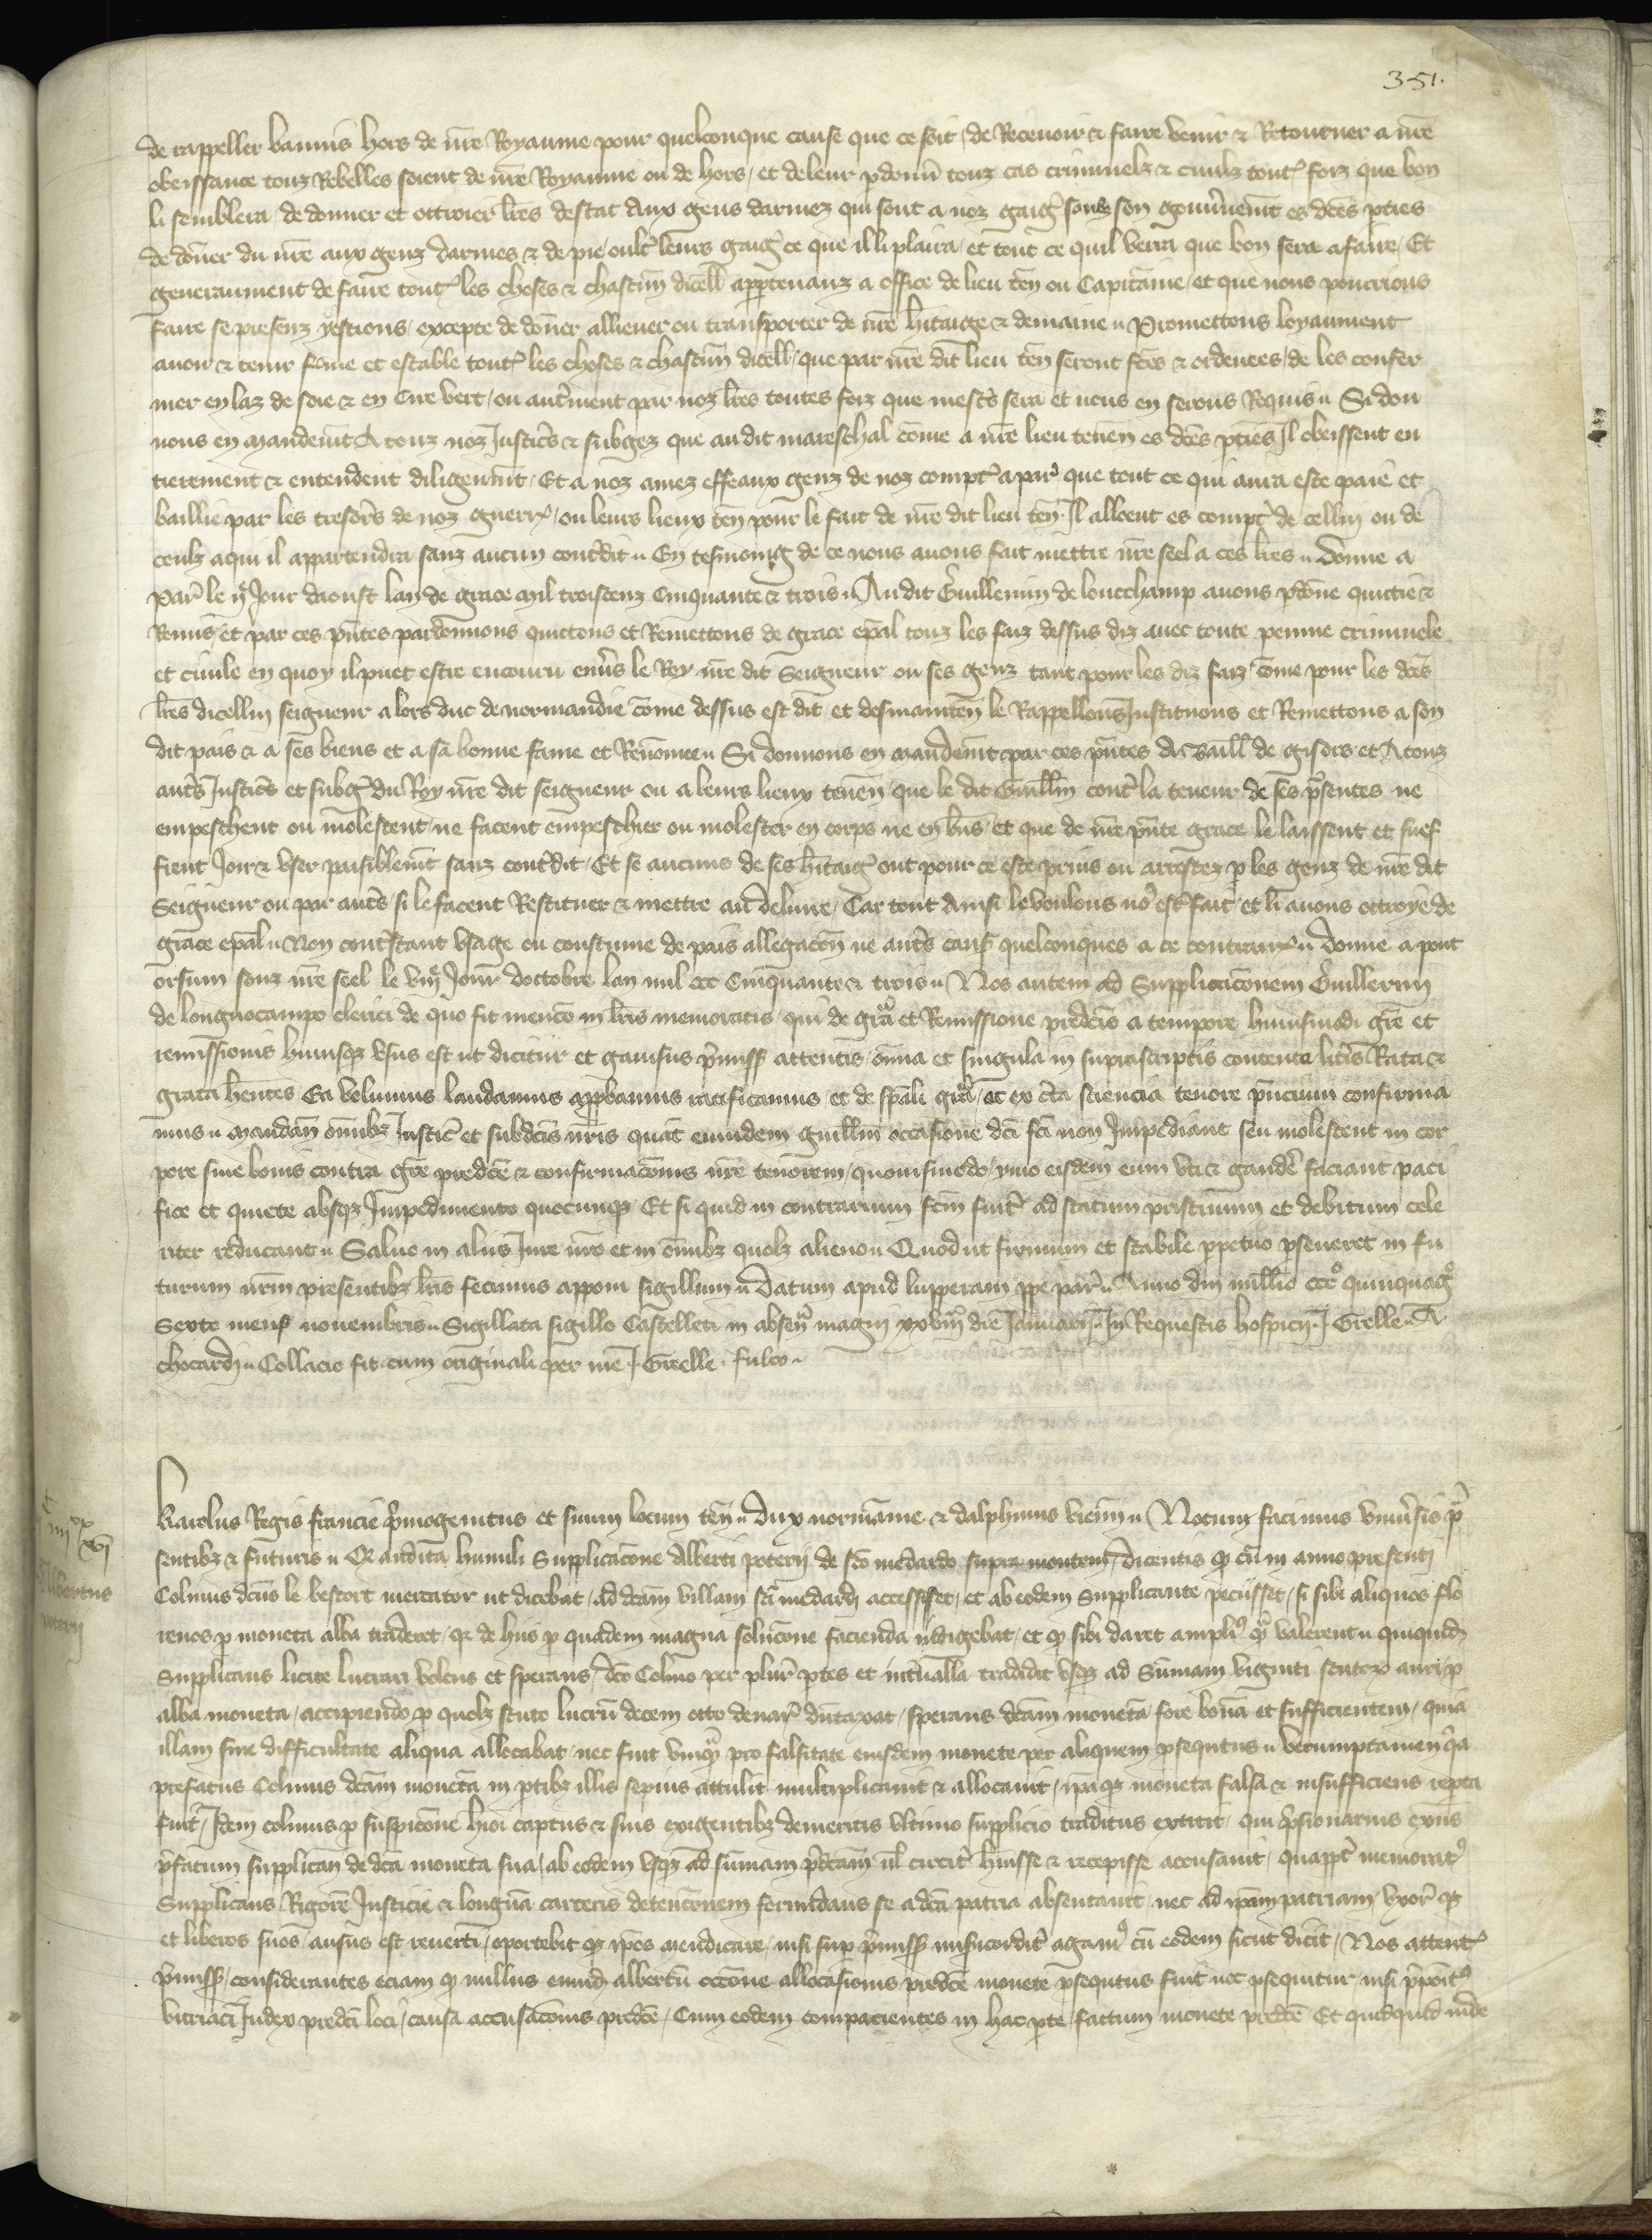 351.
de rappeller bannis hors de nr̄e Royaume pour quelconque cause que ce soit / de Recevoir & faire venir & Retourner a nr̄e
obeissance touz Rebelles soient de nr̄e Royaume ou de hors / et de leur p̱donn̄ touz cas criminelz & civilz tout̛ foiz que bon
li semblera / de donner et ottroier lr̄es destat aux gens darmez qui sont a noz gaig̛ soubz son gouvernem̄t es dc̄es p̱ties
de dōner du nr̄e aux genz darmes & de pie / oult̛ leurs gaig̛ ce que il li plaira / et tout ce quil verra que bon sera a faire / Et
generaument de faire tout̛ les choses & chascun̄ dicell̄ app̱tenanz a office de lieu ten̄ ou Capitaine / et que nous pourrions
faire se presenz y estions / excepte de dōner alliener ou transporter de nr̄e h̄itaige & demaine ॥ Promettons loyaument
avoir & tenir ferme et estable tout̛ les choses & chascun̄ dicell̄ / que par nr̄e dit lieu ten̄ seront fc̄es & ordenees / de les confer
mer en laz de soie & en Cire vert / ou aut̛ment par noz lr̄es toutes foiz que mest̛s sera et nous en serons Requis ॥ Si don
nons en mandem̄t A touz noz Justic̛s & subgez que au dit mareschal cōme a nr̄e lieu tenen̄ es dc̄es p̱ties Il obeissent en
tierement & entendent diligenm̄t / Et a noz amez effeaux genz de noz compt̛ a par̛ que tout ce qui aura este paie et
baillie par les tresor̛s de noz guerr̛ / ou leurs lieux ten̄ pour le fait de nr̄e dit lieu ten̄ / Il alloent es compt̛ de cellui ou de
ceulz a qui il appartendra sanz aucun cont̛dit ॥ En tesmoing de ce nous avons fait mettre nr̄e seel a ces lr̄es ॥ Donne a
Par̛ le ij̊ Jour daoust lan de grace mil troiscenz Cinquante & trois ॥ Au dit Guillemin de loncchamp avons p̱dōne quictie &
Remis et par ces pn̄tes pardonnons quictons et Remettons de grace esp̄al touz les faiz dessus diz avec toute peinne criminele
et civile en quoy il puet estre encouru env̛s le Roy nr̄e dit Seigneur ou ses genz tant pour les diz faiz cōme pour les dc̄es
lr̄es dicellui seigneur alors duc de normandie cōme dessus est dit / et desmainten̄ le Rappellons Instituons et Remettons a son
dit pais & a ses biens et a sa bonne fame et Renomee ॥ Si donnons en mandem̄t par ces pn̄tes Au baill̄ de gisors et A touz
aut̛s Justic̛s et subg̛ du Roy nr̄e dit seigneur ou a leurs lieux tenen̄ que le dit Guill̄m cont̛ la teneur de ses pr̄sentes ne
empeschent ou molestent / ne facent empeschier ou molester en corps ne en bn̄s / et que de nr̄e pn̄te grace le laissent et suef
frent Joir & user paisiblem̄t sanz cont̛dit / Et se aucuns de ses h̄itaig̛ ont pour ce este prins ou arrestez p̱ les genz de nr̄e dit
Seigneur ou par aut̛s / si le facent Restituer & mettre au delivre / Car tout Ainsi le voulons nơ est̛ fait / et li avons ottroye de
grace esp̄al ॥ Non cont̛stant Usage ou coustume de pais allegacōn ne aut̛s caus̛ quelconques a ce contrair̛ ॥ Donne a pont
orsum soubz nr̄e seel le viij̊ Jour doctobre lan mil ccc Cinquante & trois ॥ Nos autem ad Supplicacōnem Guillermi
de longuocampo clerici de quo fit mencō in lr̄is memoratis / qui de gra̅ et Remissione predc̄is a tempore huiusmodi gr̄e et
remissionis hucusq̨ usus est ut dicitur et gavisus p̛miss̛ attentis / om̄ia et singula in suprascriptis contenta litt̛is Rata &
grata h̄entes Ea volumus laudamus app̱bamus ratificamus / et de sp̄ali gr̄a / et ex c̛ta sciencia tenore pn̄cium confirma
mus ॥ mandan̄ om̄ibz Justic̛ et subdc̄is nr̄is quat̛ eumdem guill̄m occasione dc̄i fc̄i non Impediant seu molestent in cor
pore sive bonis contra gr̄e predc̄e & confirmacōnis nr̄e tenorem / quovismodo / ymo eisdem eum uti & gaud̛e faciant paci
fice et quiete absq̨ Impedimento quocunq̨ Et si quid in contrarium fc̄m fuit̛ ad statum pristinum et debitum cele
riter reducant ॥ Salvo in aliis Jure nr̄o et in om̄ibz quolz alieno ॥ Quod ut firmum et stabile p̱petuo p̱severet in fu
turum nr̄m presentibz lr̄is fecimus apponi sigillum ॥ Datum apud lupperam p̱pe par̛ ॥ Anno dn̄i mill̄io cccᵒ quinquagᵒ
Sexto mens̛ novembris ॥ Sigillata sigillo Castelleti in absen̄ magni xxviijᵃ die Januarii ॥ In Requestis hospicij ॥ J Grelle ॥ A
chocardi ॥ Collacio fit cum originali per me ॥ J Grelle · fulco ॥
Karolus Regis francie p̛mogenitus et suum locum ten̄ ॥ Dux normanie & dalphinus vien̄n ॥ Notum facimus univ̛sis p̛
sentibz & futuris ॥ Q̨ audita humili Supplicacōne Alberti poterij de sc̄o medardo supra montem / dicentis q̨ cū in anno presenti
Colinus dc̄us le bestort mercator ut dicebat / ad dc̄am villam sc̄i medardi accessisset / et ab eodem Supplicante peciisset / si sibi aliquos flo
renos p̱ moneta alba traderet / q̨ de hiis p̱ quadem magna solucōne facienda indigebat / et q̨ sibi daret ampli̛ q̨ valerent ॥ quiquid̛
Supplicans licite lucrari volens et sperans / dc̄o Colino per plur̛ p̱tes et int̛valla tradidit usq̨ ad Summam viginti scutoꝝ auri / p̱
alba moneta / accipiendo p̱ quolz scuto lucrū decem octo denar̛ dūtaxat / sperans dc̄am monetā fore bonā et sufficientem / quia
illam sine difficultate aliqua allocabat / nec fuit unq̨ pro falsitate eiusdem monete per aliquem p̱sequtus ॥ Verumptamen q̛a
prefatus Colinus dc̄am monetā in p̱tibz illis sepius attulit multiplicavit & allocavit / ip̄aq̨ moneta falsa & insufficiens rep̱ta
fuit / Idem colinus p̱ suspicōne hi̛oi captus & suis exigentibz demeritis ultimo supplicio traditus extitit / qui p̛sionarius exn̄s
p̛fatum supplican̄ de dc̄a moneta sua / ab eodem usq̨ ad sūmam p̛dc̄am ul̄ circit̛ h̄uisse & recepisse accusavit / quapp̱t̛ memorat̛
Supplicans Rigorē Justicie & longuā carceris detencōnem formidans se a dc̄a patria absentavit / nec ad ip̄am patriam / uxor̛ q̨
et liberos suos / ausus est reverti / oportebit q̨ ip̄os mendicare / nisi sup̱ p̛miss̛ mis̛icordit̛ agam̛ cū eodem sicut dicit / Nos attent̛
p̛miss̛ / considerantes eciam q̨ nullus eumd̛ albertū occ̄one allocasionis predc̄e monete p̱sequtus fuit nec p̱sequitur / nisi p̛poit̛
vitriaci Judex predc̄i loci / causa accusacōnis predc̄e / Cum eodem compacientes in hac p̱te factum monete predc̄e Et quidquid inde
iiijˣˣ xvj
Albertus
poterij